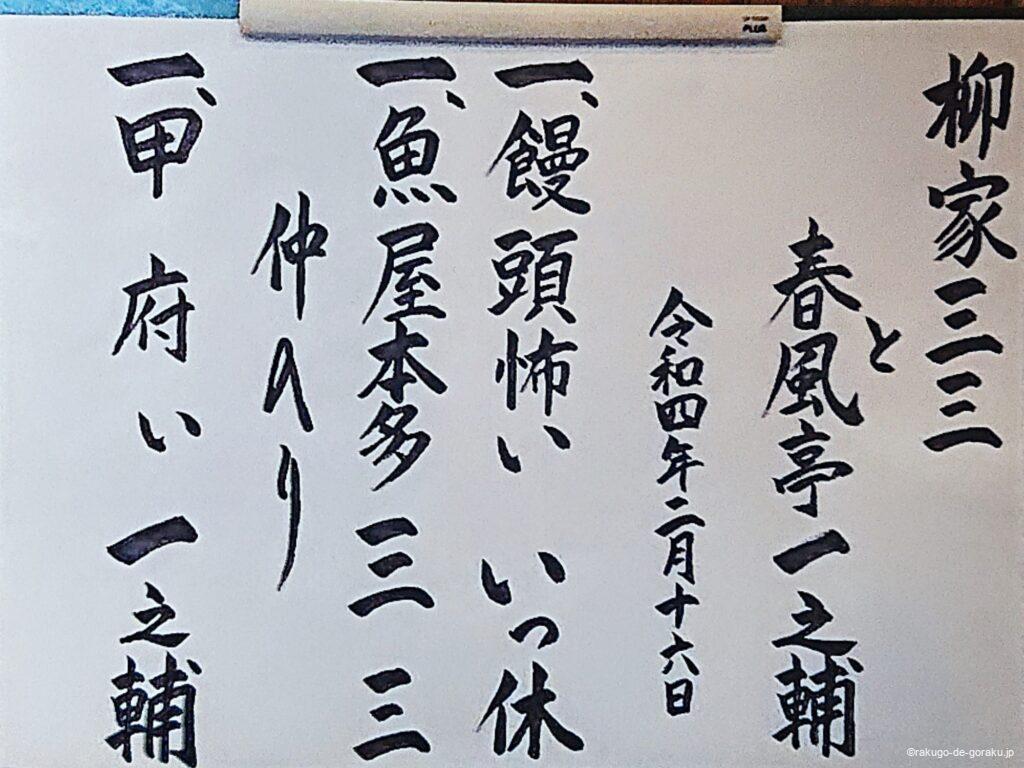 柳家三三
と
春風亭一之輔
令和四年二月十六日
一、饅頭怖い いっ休
一、魚屋本多 三三
仲入り
一、甲府い 一之輔
PLUS
©rakugo-de-goraku.jp